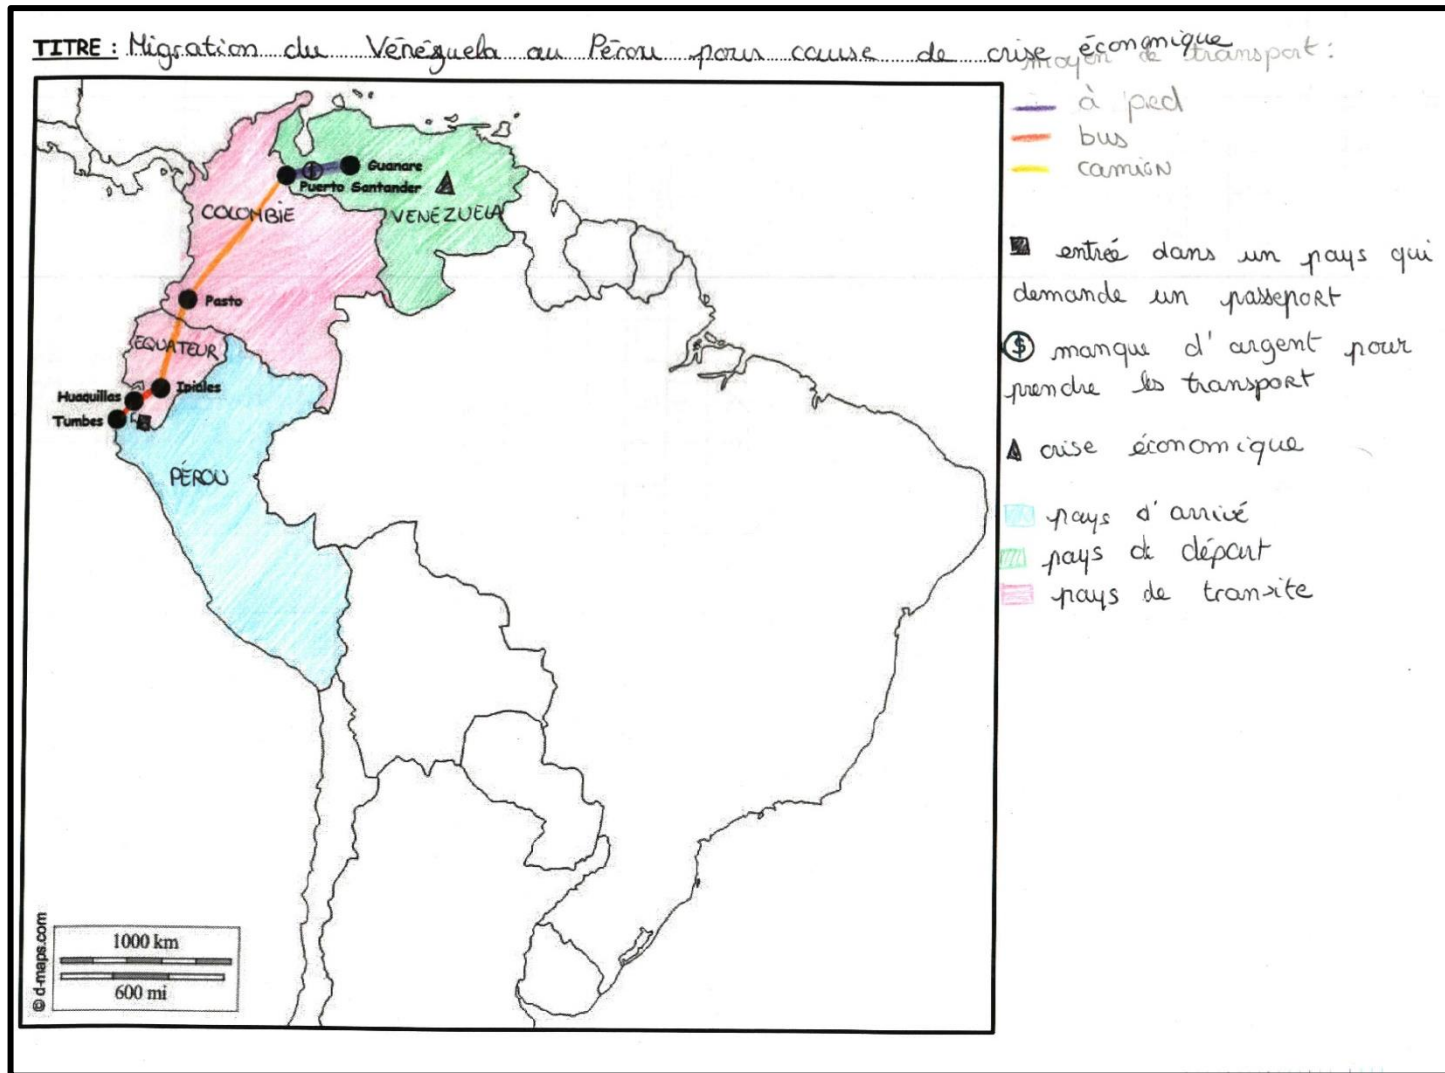 TITRE : Migration du Vénézuela au Pérou pour cause de crise économique
moyen de transport :
à pied
bus
camion
entrée dans un pays qui
demande un passeport
$ manque d'argent pour
prendre les transport
crise économique
pays d'arrivé
pays de départ
pays de transite
$
Guanare
Puerto Santander
COLOMBIE
VENEZUELA
Pasto
EQUATEUR
Ipiales
Huaquillas
Tumbes
PÉROU
1000 km
600 mi
© d-maps.com